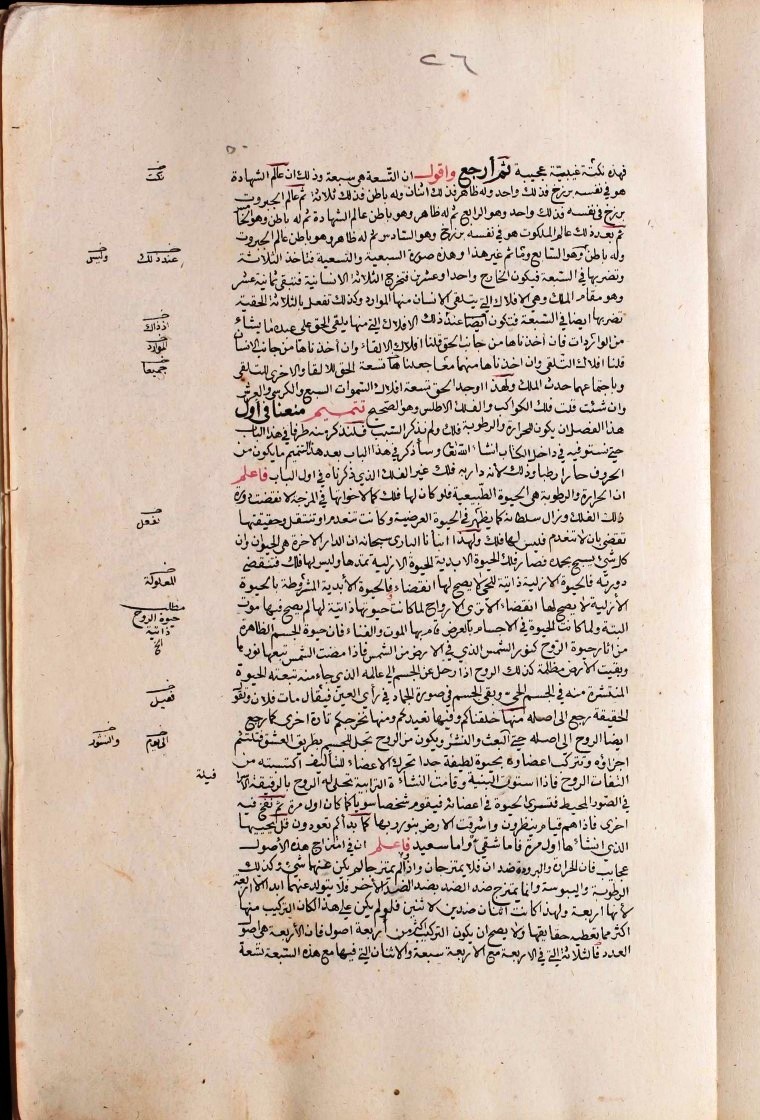 ٢٦
فهذه نكتة غيبية عجيبة ثم أرجع واقول ان التسعة هى سبعة وذلك ان عالم الشهادة
هو فى نفسه برزخ فذلك واحد وله ظاهر فذلك اثنان وله باطن فذلك ثلاثة ثم عالم الجبروت
برزخ فى نفسه فذلك واحد وهو الرابع ثم له ظاهر وهو باطن عالم الشهادة ثم له باطن وهو الخامس
ثم بعد ذلك عالم الملكوت هو فى نفسه برزخ وهو السادس ثم له ظاهر وهو باطن عالم الجبروت
وله باطن وهو السابع وما ثم غير هذا وهذه صورة السبعية والتسعية فتاخذ الثلاثة
وتضربها فى السبعة فيكون الخارج واحدا وعشرين فتخرج الثلاثة الانسانية فتبقى ثمانية عشر
وهو مقام الملك وهى الافلاك التى يتلقى الانسان منها الموارد وكذلك تفعل بالثلاثة الحقية
تضربها ايضا فى السبعة فتكون ايضا عند ذلك الافلاك التى منها يلقى الحق على عبده ما يشاء
من الواردات فان أخذناها من جانب الحق قلنا افلاك الالقاء وان أخذناها من جانب الانسان
قلنا افلاك التلقى وان اخذناها منهما معا جعلنا تسعة الحق للالقا والاخرى للتلقى
وباجتماعهما حدث الملك ولهذا اوجد الحق تسعة افلاك السموات السبع والكرسى والعرش
وان شئت قلت فلك الكواكب والفلك الاطلس وهو الصحيح تتميم منعنا فى أول
هذا الفصل ان يكون للحرارة والرطوبة فلك ولم نذكر السبب فلنذكر منه طرفا فى هذا الباب
حتى نستوفيه فى داخل الكتاب انشا الله تعالى وسأذكر فى هذا الباب بعد هذا التتميم ما يكون من
الحروف حارا رطبا وذلك لأنه دار به فلك غير الفلك الذى ذكرناه فى اول الباب فاعلم
ان الحرارة والرطوبة هى الحيوة الطبيعية فلو كان لها فلك كما لاخواتها فى المزجة لانقضت دورة
ذلك الفلك وزال سلطانه كما يظهر فى الحيوة العرضية وكانت تنعدم او تنتقل وحقيقتها
تقضى بان لا تنعدم فليس لها فلك ولهذا انبأنا البارى سبحانه ان الدار الاخرة هى الحيوان وان
كل شئ يسبح بحمده فصار فلك الحيوة الابدية الحيوة الازلية تمدها وليس لها فلك فتنقضى
دورته فالحيوة الازلية ذاتية للحى لا يصح لها انقضاء فالحيوة الأبدية المشروطة بالحيوة
الأزلية لا يصح لها انقضاء الا ترى الارواح لما كانت حيوتها ذاتية لها لم يصح فيها موت
البتة ولما كانت الحيوة فى الاجسام بالعرض قام بها الموت والفناء فان حيوة الجسم الظاهرة
من اثار حيوة الروح كنور الشمس الذى فى الارض من الشمس فاذا مضت الشمس تبعها نورها
وبقيت الأرض مظلمة كذلك الروح اذا رحل عن الجسم الى عالمه الذى جاء منه تبعته الحيوة
المنتشرة منه فى الجسم الحى وبقى الجسم فى صورة الجماد فى رأى العين فيقال مات فلان وتقول
الحقيقة رجع الى اصله منها خلقناكم وفيها نعيدكم ومنها نخرجكم تارة اخرى كما رجع
ايضا الروح الى اصله حتى البعث والنشر ويكون من الروح تجل للجسم بطريق العشق فتلتئم
اجزاؤه وتتركب اعضاؤه بحيوة لطيفة جدا تحرك الاعضاء للتأليف اكتسبته من
التفات الروح فاذا استوت البنية وقامت النشأة الترابية تجلى له الروح بالرقيقة
فى الصور المحيط فتسرى الحيوة فى اعضائه فيقوم شخصا سويا كما كان اول مرة ثم نفخ فيه
اخرى فاذا هم قيام ينظرون واشرقت الارض بنور ربها كما بدأكم تعودون قل يحييها
الذى انشأها اول مرة فاما شقى واما سعيد فاعلم ان فى امتزاج هذه الأصول
عجايب فان الحرارة والبرودة ضدان فلا يمتزجان واذا لم يمتزجا لم يكن عنهما شئ وكذلك
الرطوبة واليبوسة وانما يمتزج ضد الضد بضد الضد الأخر فلا يتولد عنهما ابدا الا اربعة
لأنها اربعة ولهذا كانت اثنان ضدين لاثنين فلو لم يكن على هذا لكان التركيب منها
اكثر مما تعطيه حقايقها ولا يصح ان يكون التركيب اكثر من أربعة اصول فان الأربعة هى اصول
العدد فالثلاثة التى فى الاربعة مع الاربعة سبعة والاثنان التى فيها مع هذه السبعة تسعة
نكت
عند ذلك
وليس
اذ ذاك
الموارد
جميعا
تفعل
المعلولة
مطلب
حيوة الروح
ذاتية
الخ
فقيل
الى يوم
والنشور